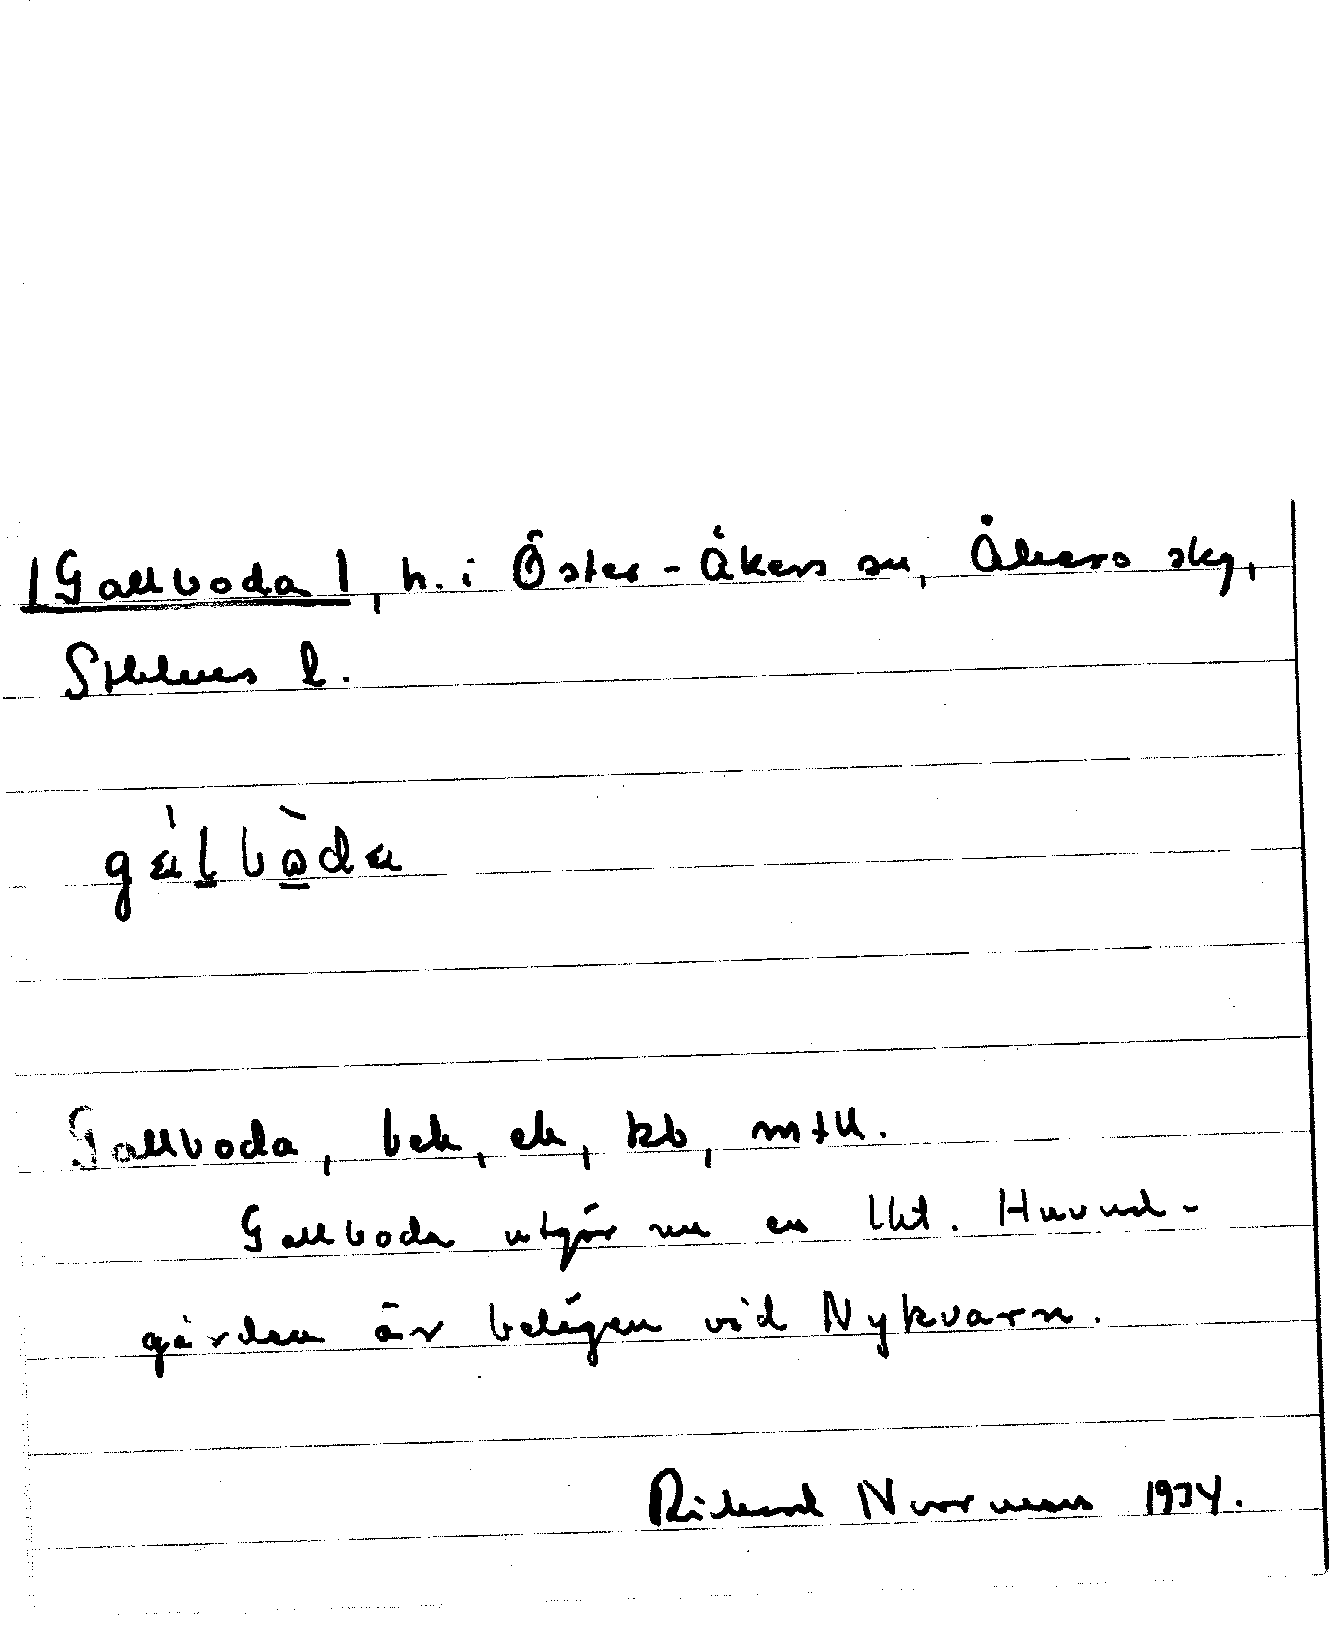 [Gallboda], h. i Öster-Åkers sn, Åkers skg,
Sthlms l.
gálbòda
Gallboda, bek, ek, kb, mtll.
Gallboda utgör nu en lht. Huvud-
gården är belägen vid Nykvarn.
Rikard Norrman 1934.